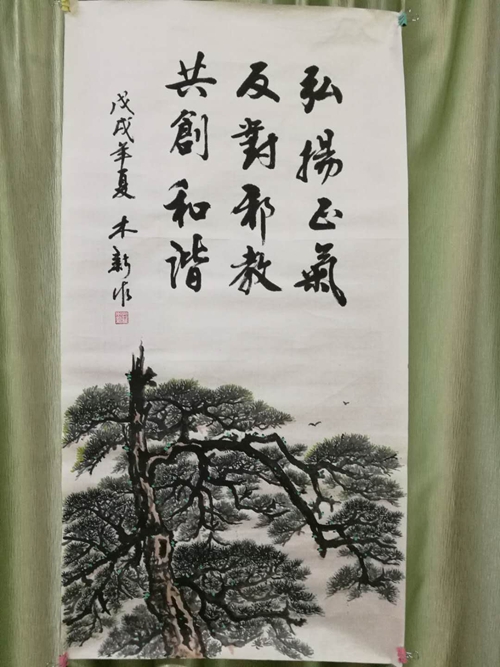 弘揚正氣
反對邪教
共創和諧
戊戌年夏 木新作